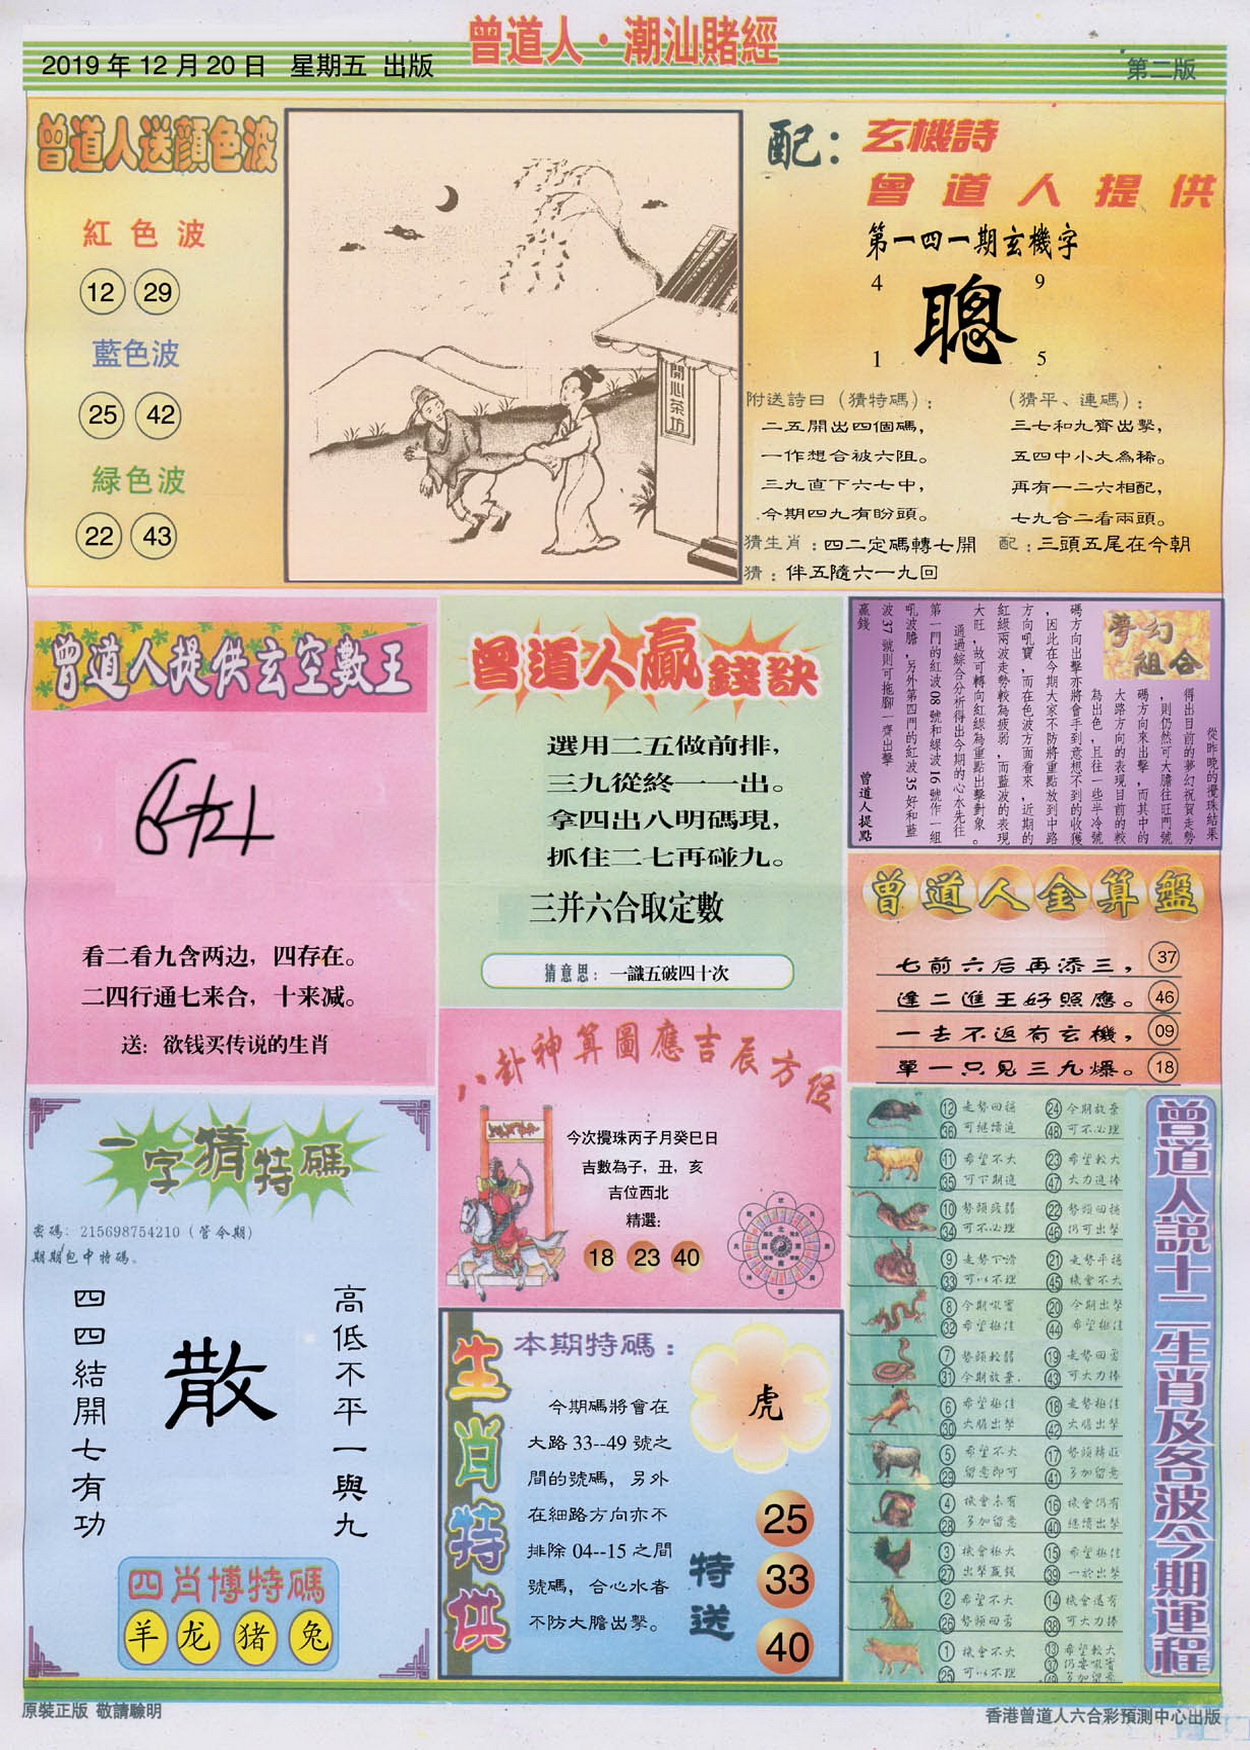 曾道人·潮汕賭經
2019年12月20日 星期五 出版
第二版
曾道人送顔色波
紅色波
12 29
藍色波
25 42
緑色波
22 43
開心茶坊
配：玄機詩
曾道人提供
第一四一期玄機字
4 9
聰
1 5
附送詩曰（猜特碼）：
二五開出四個碼，
一作想合被六阻。
三九直下六七中，
今期四九有盼頭。
（猜平、連碼）：
三七和九齊出擊，
五四中小大為稀。
再有一二六相配，
七九合二看兩頭。
猜生肖：四二定碼轉七開 配：三頭五尾在今朝
猜：伴五隨六一九回
曾道人提供玄空數王
看二看九含两边，四存在。
二四行通七来合，十来减。
送：欲钱买传说的生肖
曾道人贏錢訣
選用二五做前排，
三九從終一一出。
拿四出八明碼現，
抓住二七再碰九。
三并六合取定數
猜意思：一識五破四十次
夢幻組合
從昨晚的攪珠結果
得出目前的夢幻祝賀走勢
，則仍然可大膽往旺門號
碼方向來出擊，而其中的
大路方向的表現目前的較
為出色，且往一些半冷號
碼方向出擊亦將會手到意想不到的收獲
，因此在今期大家不防將重點放到中路
方向吼寶，而在色波方面看來，近期的
紅綠兩波走勢較為疲弱，而藍波的表現
大旺，故可轉向紅綠為重點出擊對象。
通過綜合分析得出今期的心水先往
第一門的紅波08號和綠波16號作一組
吼波膽，另外第四門的紅波35好和藍
波37號則可拖腳一齊出擊
贏錢
曾道人提點
曾道人金算盤
七前六后再添三， 37
逢二進王好照應。 46
一去不返有玄機， 09
單一只見三九爆。 18
八卦神算圖應吉辰方位
今次攪珠丙子月癸巳日
吉數為子，丑，亥
吉位西北
精選：
18 23 40
一字猜特碼
密碼：215698754210（管今期）
期期包中特碼。
高低不平一與九
散
四四結開七有功
四肖博特碼
羊 龙 猪 兔
生肖特供
本期特碼：
虎
今期碼將會在
大路33--49號之
間的號碼，另外
在細路方向亦不
排除04--15之間
號碼，合心水者
不防大膽出擊。
特送
25
33
40
曾道人説十二生肖及各波今期運程
12 走勢回穩 24 今期放棄
36 可繼續追 48 可不必理
11 希望不大 23 希望較大
35 可下期追 47 大力追捧
10 勢頭疲弱 22 勢頭回穩
34 可不必理 46 仍可出擊
9 走勢下滑 21 走勢平穩
33 可以不理 45 機會不大
8 今期吼寶 20 今期出擊
32 希望極佳 44 希望極佳
7 勢頭較弱 19 走勢回勇
31 今期放棄. 43 可大力捧
6 希望極佳 18 走勢極佳
30 大膽出擊 42 大膽出擊
5 希望不大 17 勢頭精旺
29 留意即可 41 多加留意
4 機會未有 16 機會仍有
28 多加留意 40 繼續出擊
3 機會極大 15 希望極佳
27 出擊贏錢 39 一於出擊
2 希望不大 14 機會還有
26 勢頭回勇 38 可大力捧
1 機會不大 13 希望較大
25 可以不理 37 仍要吼寶
49 多加留意
原裝正版 敬請驗明
香港曾道人六合彩預測中心出版